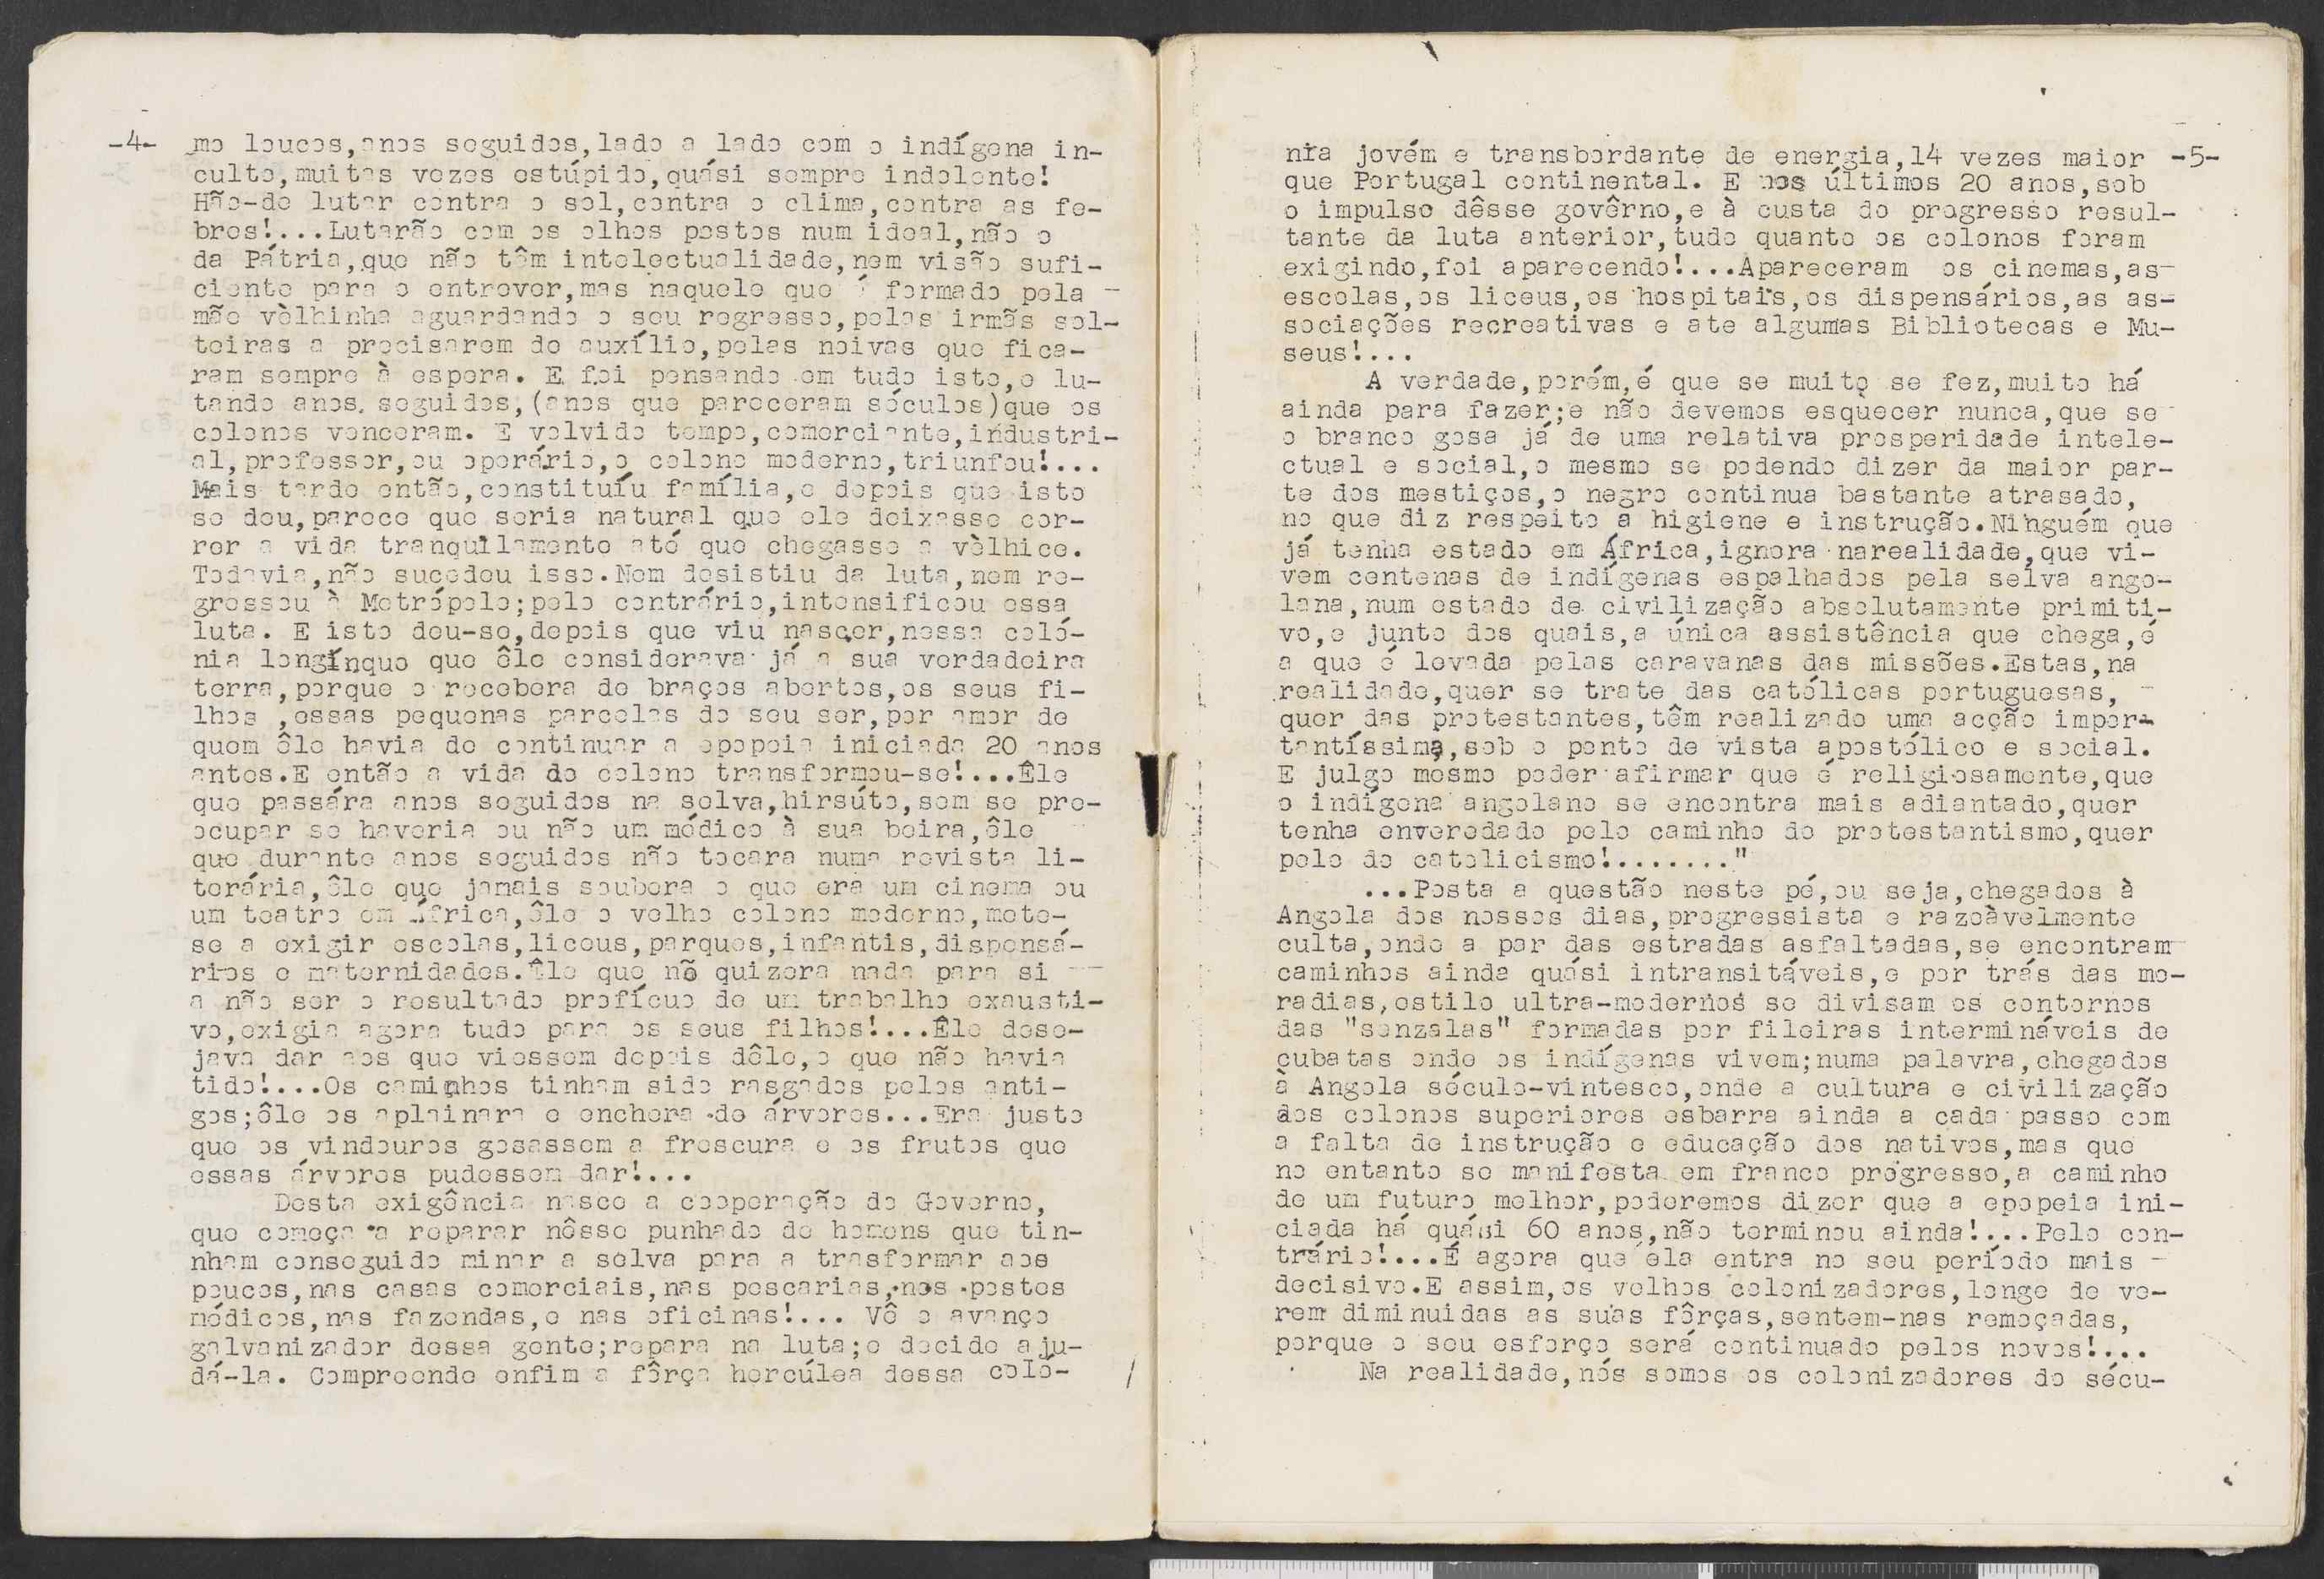 -4-
mo loucos,anos seguidos,lado a lado com o indígena in-
culto,muitas vezes estúpido,quási sempre indolente!
Hão-de lutar contra o sol,contra o clima,contra as fe-
bres!....Lutarão com os olhos postos num ideal,não o
da Pátria,que não têm intelectualidade,nem visão sufi-
ciente para o entrever,mas naquele que é formado pela
mãe vèlhinha aguardando o seu regresso,pelas irmãs sol-
teiras a precisarem de auxílio,pelas noivas que fica-
ram sempre à espera. E foi pensando em tudo isto,e lu-
tando anos seguidos,(anos que pareceram séculos)que os
colonos venceram. E volvido tempo,comerciante,industri-
al,professor,ou operário,o colono moderno,triunfou!...
Mais tarde então,constituíu família,e depois que isto
se deu,parece que seria natural que ele deixasse cor-
rer a vida tranquilamente até que chegasse a vèlhice.
Todavia,não sucedeu isso.Nem desistiu da luta,nem re-
gressou à Metrópole;pelo contrário,intensificou essa
luta. E isto deu-se,depois que viu nascer,nessa coló-
nia longínqua que êle considerava já a sua verdadeira
terra,porque o recebera de braços abertos,os seus fi-
lhos ,essas pequenas parcelas do seu ser,por amor de
quem êle havia de continuar a epopeia iniciada 20 anos
antes.E então a vida do colono transformou-se!....Êle
que passára anos seguidos na selva,hirsúto,sem se pre-
ocupar se haveria ou não um médico à sua beira,êle
que durante anos seguidos não tocara numa revista li-
terária,êle que jamais soubera o que era um cinema ou
um teatro em África,êle o velho colono moderno,mete-
se a exigir escolas,liceus,parques,infantis,dispensá-
rios e maternidades.Êle que nõ quizera nada para si
a não ser o resultado profícuo de um trabalho exausti-
vo,exigia agora tudo para os seus filhos!....Êle dese-
java dar aos que viessem depois dêle,o que não havia
tido!....Os caminhos tinham sido rasgados pelos anti-
gos;êle os aplainara e enchera de árvores...Era justo
que os vindouros gosassem a frescura e os frutos que
essas árvores pudessem dar!....
Desta exigência nasce a cooperação do Governo,
que começa a reparar nêsse punhado de homens que tin-
nham conseguido minar a selva para a trasformar aos
poucos,nas casas comerciais,nas pescarias,nos postos
médicos,nas fazendas,e nas oficinas!.... Vê o avanço
galvanizador dessa gente;repara na luta;e decide aju-
dá-la. Compreende enfim a fôrça hercúlea dessa coló-
-5-
nia jovém e transbordante de energia,14 vezes maior
que Portugal continental. E nos últimos 20 anos,sob
o impulso dêsse govêrno,e à custa do progresso resul-
tante da luta anterior,tudo quanto os colonos foram
exigindo,foi aparecendo!....Apareceram os cinemas,as
escolas,os liceus,os hospitais,os dispensários,as as-
sociações recreativas e ate algumas Bibliotecas e Mu-
seus!....
A verdade,porém,é que se muito se fez,muito há
ainda para fazer;e não devemos esquecer nunca,que se
o branco gosa já de uma relativa prosperidade intele-
ctual e social,o mesmo se podendo dizer da maior par-
te dos mestiços,o negro continua bastante atrasado,
no que diz respeito a higiene e instrução.Ninguém que
já tenha estado em África,ignora narealidade,que vi-
vem centenas de indígenas espalhados pela selva ango-
lana,num estado de civilização absolutamente primiti-
vo,e junto dos quais,a única assistência que chega,é
a que é levada pelas caravanas das missões.Estas,na
realidade,quer se trate das católicas portuguesas,
quer das protestantes,têm realizado uma acção impor-
tantíssima,sob o ponto de vista apostólico e social.
E julgo mesmo poder afirmar que é religiosamente,que
o indígena angolano se encontra mais adiantado,quer
tenha enveredado pelo caminho do protestantismo,quer
pelo do catolicismo!......."
...Posta a questão neste pé,ou seja,chegados à
Angola dos nossos dias,progressista e razoàvelmente
culta,onde a par das estradas asfaltadas,se encontram
caminhos ainda quási intransitáveis,e por trás das mo-
radias,estilo ultra-modernos se divisam os contornos
das "senzalas" formadas por fileiras intermináveis de
cubatas onde os indígenas vivem;numa palavra,chegados
à Angola século-vintesco,onde a cultura e civilização
dos colonos superiores esbarra ainda a cada passo com
a falta de instrução e educação dos nativos,mas que
no entanto se manifesta em franco progresso,a caminho
de um futuro melhor,poderemos dizer que a epopeia ini-
ciada há quási 60 anos,não terminou ainda!....Pelo con-
trário!....É agora que ela entra no seu período mais
decisivo.E assim,os velhos colonizadores,longe de ve-
rem diminuidas as suas fôrças,sentem-nas remoçadas,
porque o seu esforço será continuado pelos novos!....
Na realidade,nós somos os colonizadores do sécu-